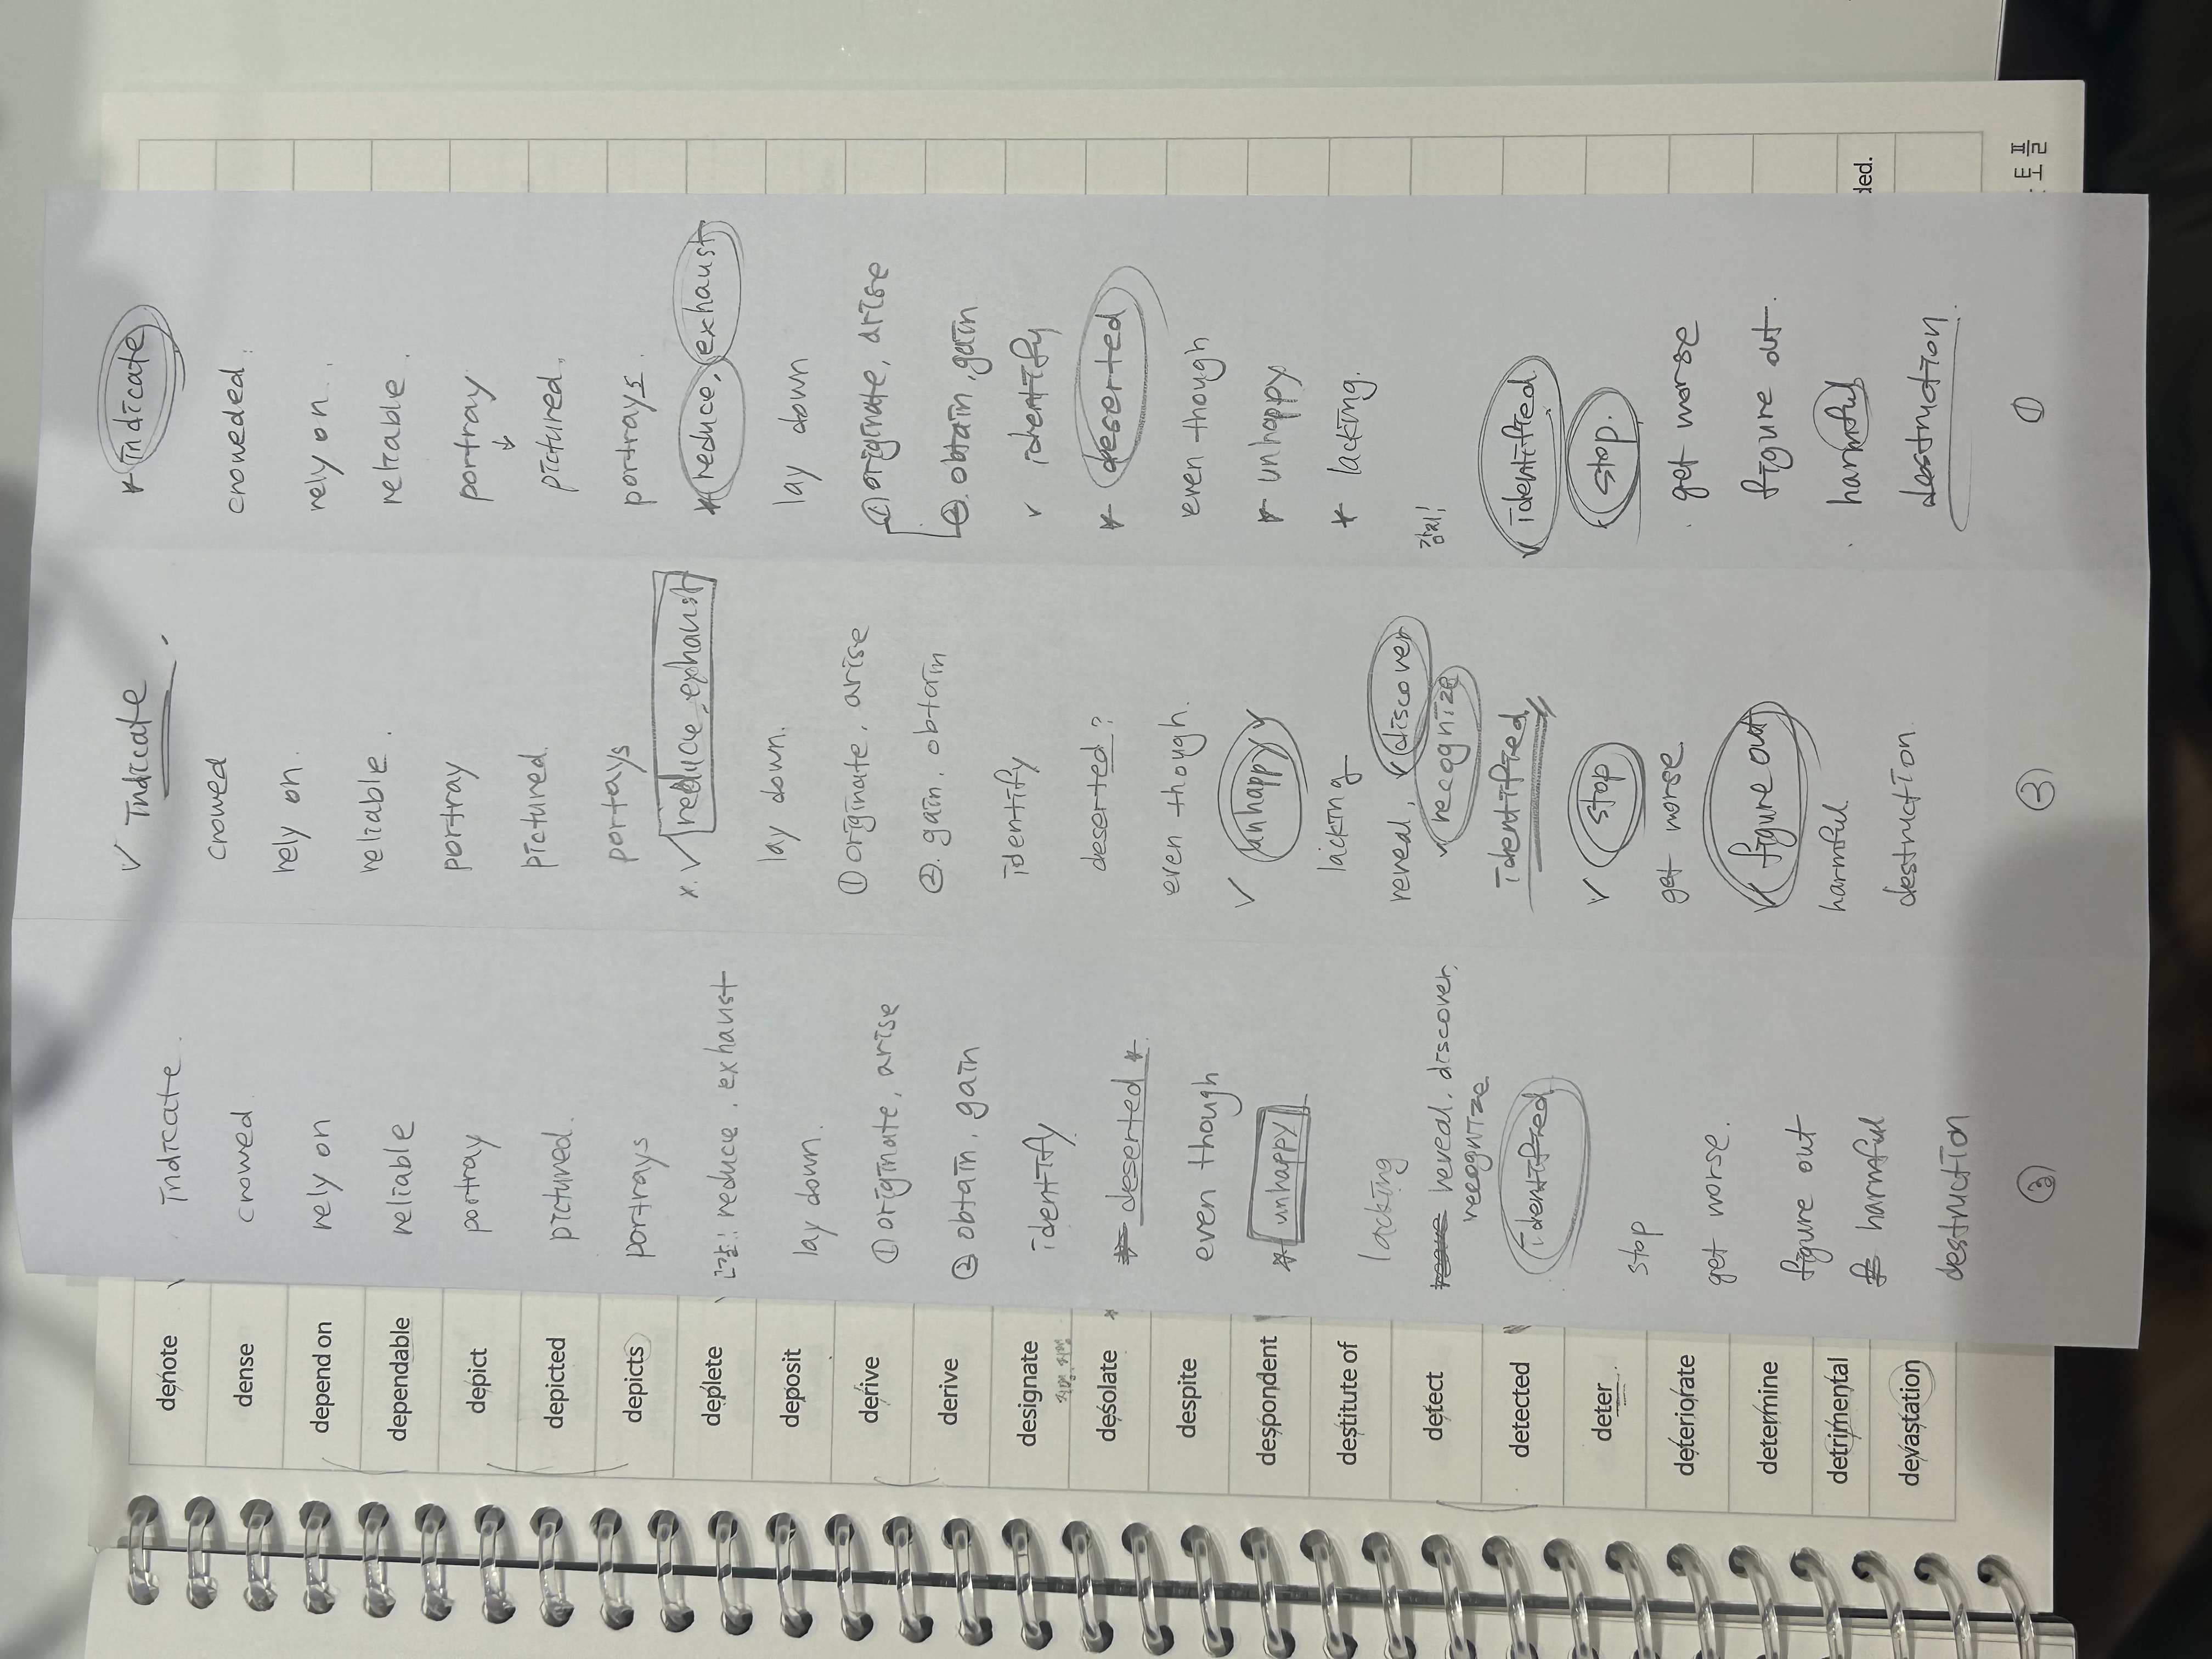 denote
dense
depend on
dependable
depict
depicted
depicts
deplete
deposit
derive
derive
designate
desolate
despite
despondent
destitute of
detect
detected
deter
deteriorate
determine
detrimental
devastation
indicate.
crowed
rely on
reliable
portray
pictured.
portrays
reduce, exhaust
lay down.
① originate, arise
② obtain, gain
identify
* deserted *
even though
* unhappy
lacking
reveal, discover,
recognize
identified
stop
get worse.
figure out
harmful
destruction
③
✓ indicate.
crowed
rely on
reliable.
portray
pictured
portays
x. ✓ reduce, exhaust
lay down.
① originate, arise
②. gain, obtain
identify
deserted?
even though.
✓ unhappy ✓
lacking
reveal, ✓ discover
✓ recognize
identified
✓ stop
get worse
✓ figure out
harmful
destruction
②
* indicate
crowded.
rely on.
reliable.
portray
↓
pictured.
portrays.
* reduce, exhaust
lay down
① originate, arise
② obtain, gain
✓ identify
* deserted
even though
* unhappy
* lacking.
감지!
✓ identified
stop.
get worse
figure out.
harmful
destruction.
①
ded.
토플